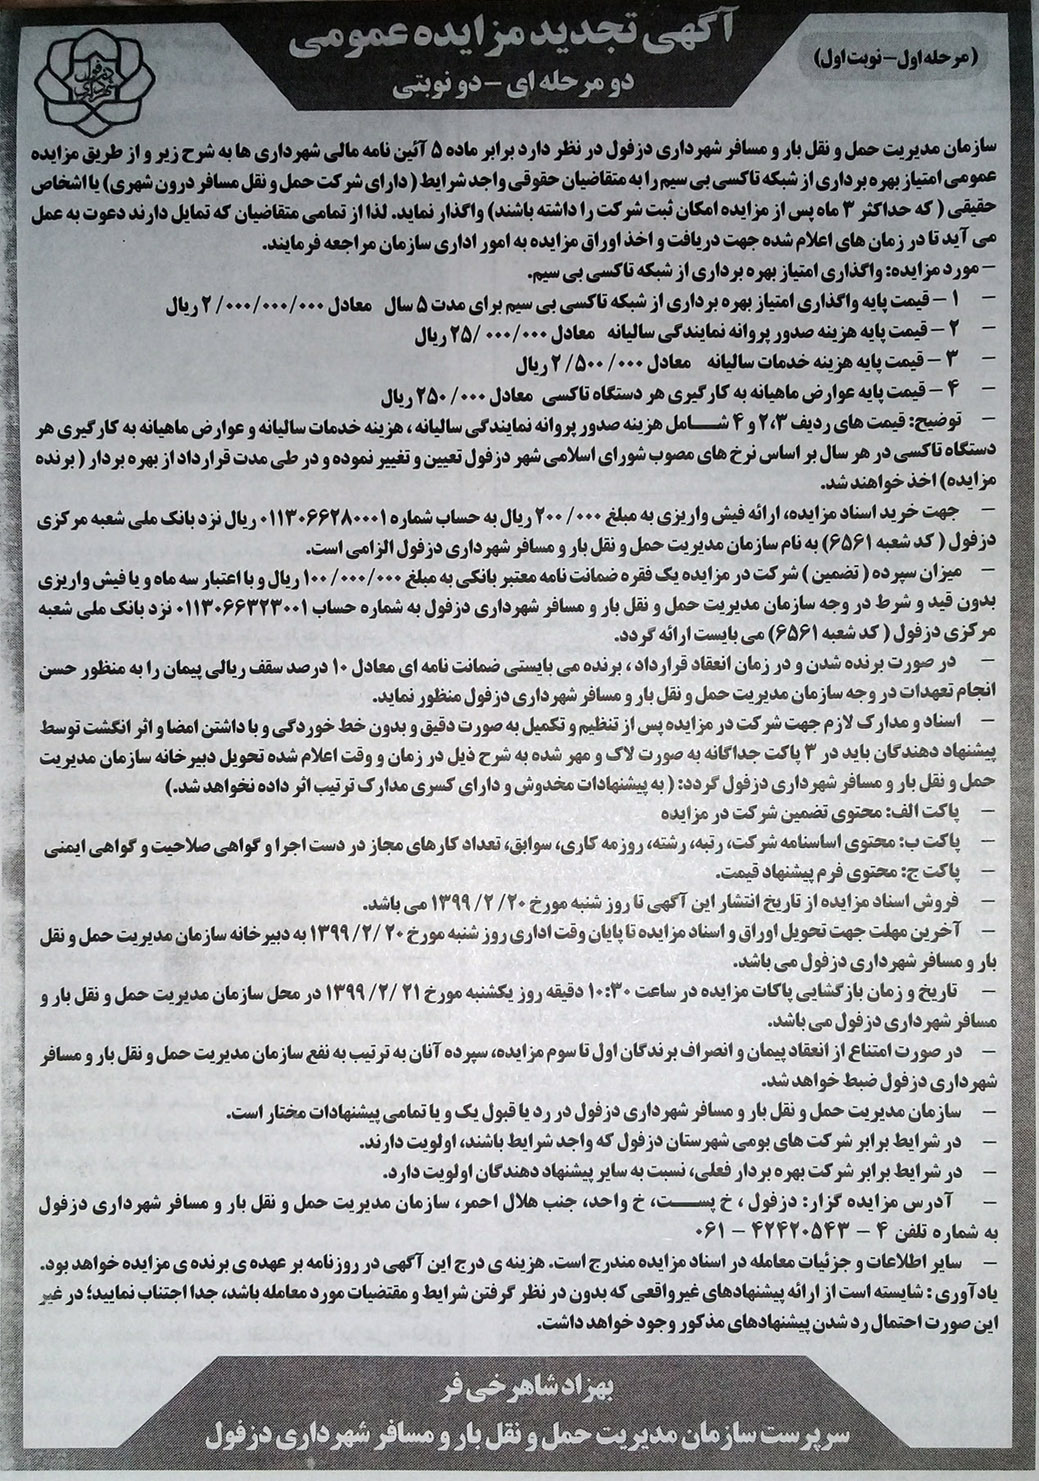 آگهی تجدید مزایده عمومی
(مرحله اول - نوبت اول)
دو مرحله ای - دو نوبتی
سازمان مدیریت حمل و نقل بار و مسافر شهرداری دزفول در نظر دارد برابر ماده ۵ آئین نامه مالی شهرداری ها به شرح زیر و از طریق مزایده
عمومی امتیاز بهره برداری از شبکه تاکسی بی سیم را به متقاضیان حقوقی واجد شرایط (دارای شرکت حمل و نقل مسافر درون شهری) یا اشخاص
حقیقی (که حداکثر ۳ ماه پس از مزایده امکان ثبت شرکت را داشته باشند) واگذار نماید. لذا از تمامی متقاضیان که تمایل دارند دعوت به عمل
می آید تا در زمان های اعلام شده جهت دریافت و اخذ اوراق مزایده به امور اداری سازمان مراجعه فرمایند.
- مورد مزایده: واگذاری امتیاز بهره برداری از شبکه تاکسی بی سیم.
- ۱ - قیمت پایه واگذاری امتیاز بهره برداری از شبکه تاکسی بی سیم برای مدت ۵ سال معادل ۲/۰۰۰/۰۰۰/۰۰۰ ریال
- ۲ - قیمت پایه هزینه صدور پروانه نمایندگی سالیانه معادل ۲۵/۰۰۰/۰۰۰ ریال
- ۳ - قیمت پایه هزینه خدمات سالیانه معادل ۲/۵۰۰/۰۰۰ ریال
- ۴ - قیمت پایه عوارض ماهیانه به کارگیری هر دستگاه تاکسی معادل ۲۵۰/۰۰۰ ریال
- توضیح: قیمت های ردیف ۲،۳ و ۴ شامل هزینه صدور پروانه نمایندگی سالیانه، هزینه خدمات سالیانه و عوارض ماهیانه به کارگیری هر
دستگاه تاکسی در هر سال بر اساس نرخ های مصوب شورای اسلامی شهر دزفول تعیین و تغییر نموده و در طی مدت قرارداد از بهره بردار (برنده
مزایده) اخذ خواهند شد.
- جهت خرید اسناد مزایده، ارائه فیش واریزی به مبلغ ۲۰۰/۰۰۰ ریال به حساب شماره ۰۱۱۳۰۶۶۲۸۰۰۰۱ ریال نزد بانک ملی شعبه مرکزی
دزفول (کد شعبه ۶۵۶۱) به نام سازمان مدیریت حمل و نقل بار و مسافر شهرداری دزفول الزامی است.
- میزان سپرده (تضمین) شرکت در مزایده یک فقره ضمانت نامه معتبر بانکی به مبلغ ۱۰۰/۰۰۰/۰۰۰ ریال و با اعتبار سه ماه و یا فیش واریزی
بدون قید و شرط در وجه سازمان مدیریت حمل و نقل بار و مسافر شهرداری دزفول به شماره حساب ۰۱۱۳۰۶۶۳۲۳۰۰۱ نزد بانک ملی شعبه
مرکزی دزفول (کد شعبه ۶۵۶۱) می بایست ارائه گردد.
- در صورت برنده شدن و در زمان انعقاد قرارداد، برنده می بایستی ضمانت نامه ای معادل ۱۰ درصد سقف ریالی پیمان را به منظور حسن
انجام تعهدات در وجه سازمان مدیریت حمل و نقل بار و مسافر شهرداری دزفول منظور نماید.
- اسناد و مدارک لازم جهت شرکت در مزایده پس از تنظیم و تکمیل به صورت دقیق و بدون خط خوردگی و با داشتن امضا و اثر انگشت توسط
پیشنهاد دهندگان باید در ۳ پاکت جداگانه به صورت لاک و مهر شده به شرح ذیل در زمان و وقت اعلام شده تحویل دبیرخانه سازمان مدیریت
حمل و نقل بار و مسافر شهرداری دزفول گردد: (به پیشنهادات مخدوش و دارای کسری مدارک ترتیب اثر داده نخواهد شد.)
- پاکت الف: محتوی تضمین شرکت در مزایده
- پاکت ب: محتوی اساسنامه شرکت، رتبه، رشته، روزمه کاری، سوابق، تعداد کارهای مجاز در دست اجرا و گواهی صلاحیت و گواهی ایمنی
- پاکت ج: محتوی فرم پیشنهاد قیمت.
- فروش اسناد مزایده از تاریخ انتشار این آگهی تا روز شنبه مورخ ۱۳۹۹/۲/۲۰ می باشد.
- آخرین مهلت جهت تحویل اوراق و اسناد مزایده تا پایان وقت اداری روز شنبه مورخ ۱۳۹۹/۲/۲۰ به دبیرخانه سازمان مدیریت حمل و نقل
بار و مسافر شهرداری دزفول می باشد.
- تاریخ و زمان بازگشایی پاکات مزایده در ساعت ۱۰:۳۰ دقیقه روز یکشنبه مورخ ۱۳۹۹/۲/۲۱ در محل سازمان مدیریت حمل و نقل بار و
مسافر شهرداری دزفول می باشد.
- در صورت امتناع از انعقاد پیمان و انصراف برندگان اول تا سوم مزایده، سپرده آنان به ترتیب به نفع سازمان مدیریت حمل و نقل بار و مسافر
شهرداری دزفول ضبط خواهد شد.
- سازمان مدیریت حمل و نقل بار و مسافر شهرداری دزفول در رد یا قبول یک و یا تمامی پیشنهادات مختار است.
- در شرایط برابر شرکت های بومی شهرستان دزفول که واجد شرایط باشند، اولویت دارند.
- در شرایط برابر شرکت بهره بردار فعلی، نسبت به سایر پیشنهاد دهندگان اولویت دارد.
- آدرس مزایده گزار: دزفول، خ پست، خ واحد، جنب هلال احمر، سازمان مدیریت حمل و نقل بار و مسافر شهرداری دزفول
به شماره تلفن ۴ - ۴۲۴۲۰۵۴۳ - ۰۶۱
- سایر اطلاعات و جزئیات معامله در اسناد مزایده مندرج است. هزینه ی درج این آگهی در روزنامه بر عهده ی برنده ی مزایده خواهد بود.
یادآوری: شایسته است از ارائه پیشنهادهای غیرواقعی که بدون در نظر گرفتن شرایط و مقتضیات مورد معامله باشد، جدا اجتناب نمایید؛ در غیر
این صورت احتمال رد شدن پیشنهادهای مذکور وجود خواهد داشت.
بهزاد شاهرخی فر
سرپرست سازمان مدیریت حمل و نقل بار و مسافر شهرداری دزفول